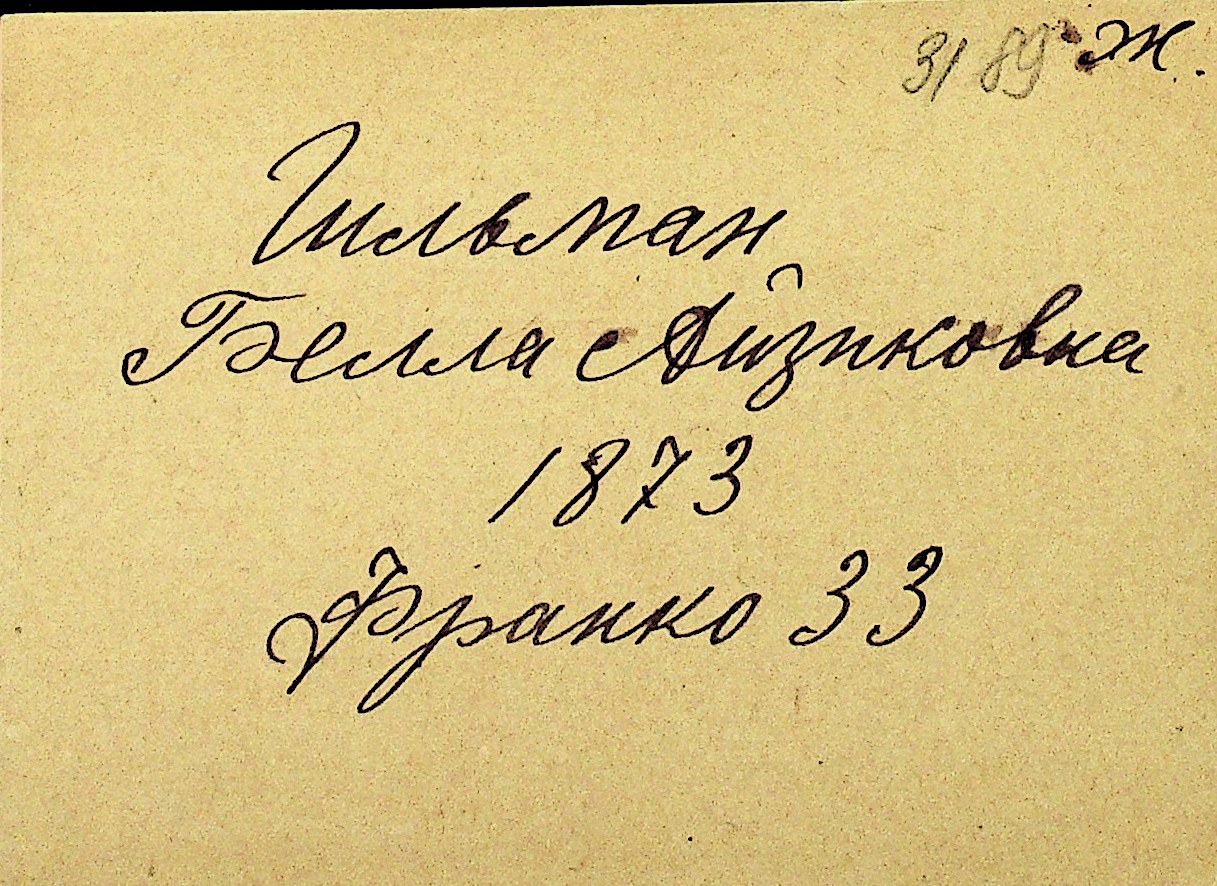 3189 ж.
Гильман
Белла Айзиковна
1873
Франко 33